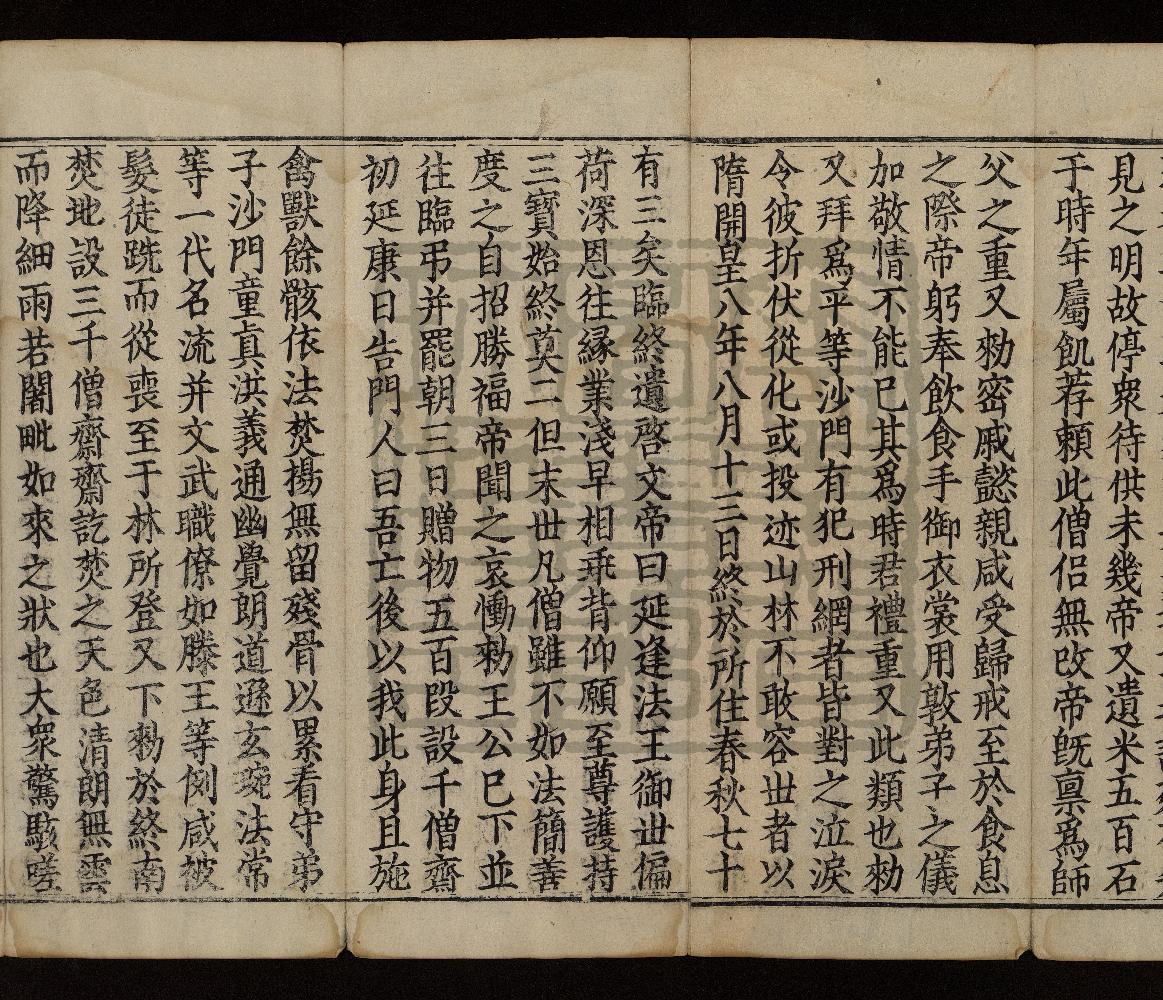 見之明故停衆待供未幾帝又遺米五百石
于時年屬飢荐賴此僧侶無改帝旣禀爲師
父之重又勑密戚懿親咸受歸戒至於食息
之際帝躬奉飲食手御衣裳用敦弟子之儀
加敬情不能已其爲時君禮重又此類也勑
又拜爲平等沙門有犯刑網者皆對之泣淚
令彼折伏從化或投迹山林不敢容世者以
隋開皇八年八月十三日終於所住春秋七十
有三矣臨終遺啓文帝曰延逢法王御世偏
荷深恩往緣業淺早相乖背仰願至尊護持
三寶始終莫二但末世凡僧雖不如法簡善
度之自招勝福帝聞之哀慟勑王公已下並
往臨弔并罷朝三日贈物五百段設千僧齋
初延康日告門人曰吾亡後以我此身且施
禽獸餘骸依法焚揚無留殘骨以累看守弟
子沙門童眞洪義通幽覺朗道遜玄琬法常
等一代名流并文武職僚如滕王等例咸被
髮徒跣而從喪至于林所登又下勑於終南
焚地設三千僧齋齋訖焚之天色清朗無雲
而降細雨若闍毗如來之狀也大衆驚駭嗟